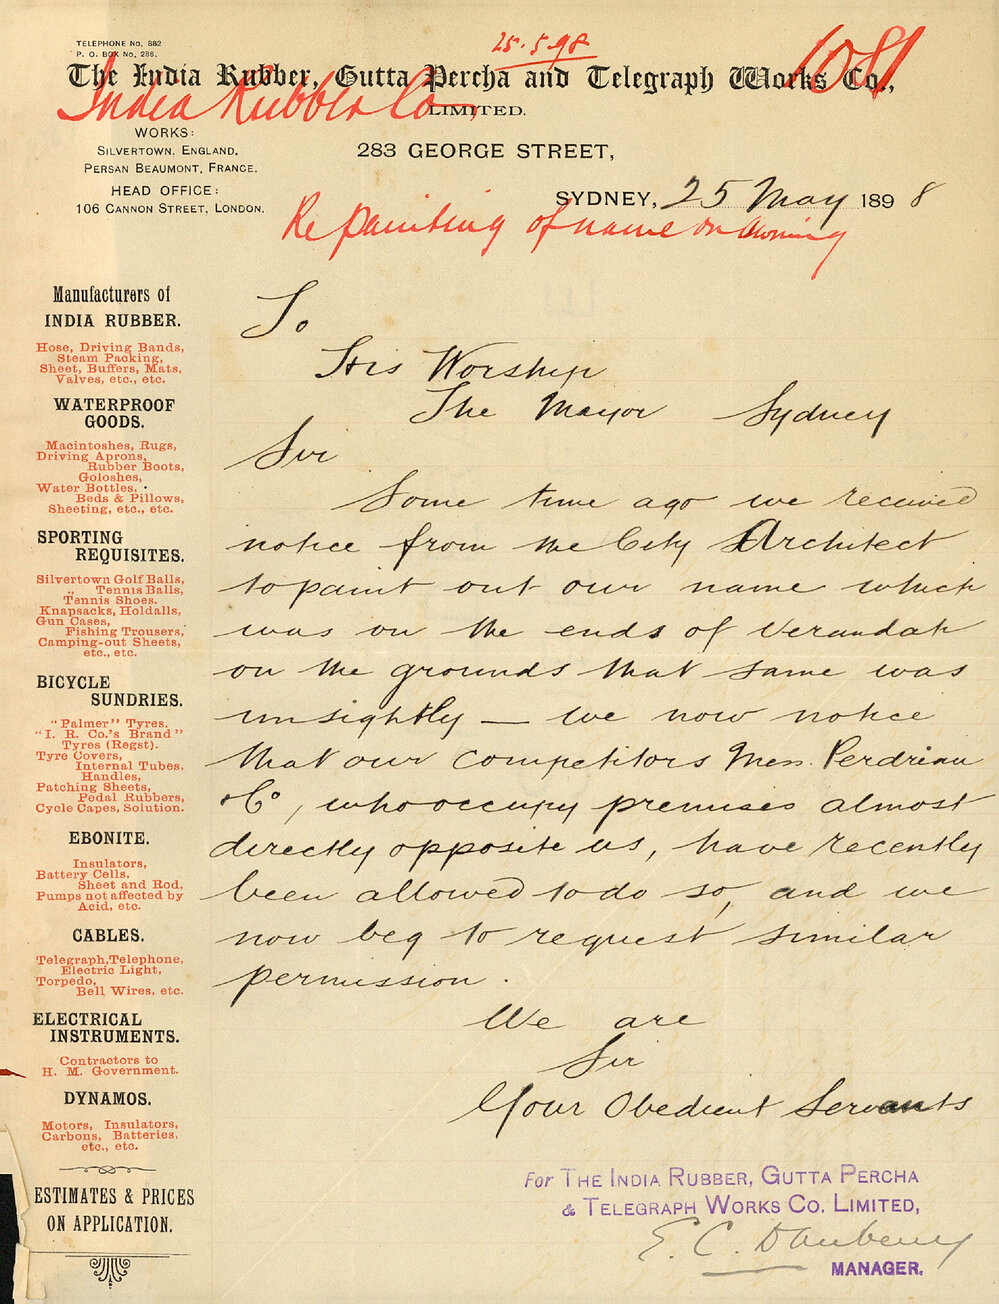 TELEPHONE No. 882
P. O. BOX No. 286.
25.5.98
1081
The India Rubber, Gutta Percha and Telegraph Works Co.,
LIMITED.
India Rubber Co
WORKS:
SILVERTOWN, ENGLAND.
PERSAN BEAUMONT, FRANCE.
HEAD OFFICE:
106 CANNON STREET, LONDON.
283 GEORGE STREET,
SYDNEY, 25 May 1898
Re painting of name on Awning
Manufacturers of
INDIA RUBBER.
Hose, Driving Bands,
Steam Packing,
Sheet, Buffers, Mats,
Valves, etc., etc.
WATERPROOF
GOODS.
Macintoshes, Rugs,
Driving Aprons,
Rubber Boots,
Goloshes,
Water Bottles,
Beds & Pillows,
Sheeting, etc., etc.
SPORTING
REQUISITES.
Silvertown Golf Balls,
„ Tennis Balls,
Tennis Shoes.
Knapsacks, Holdalls,
Gun Cases,
Fishing Trousers,
Camping-out Sheets,
etc., etc.
BICYCLE
SUNDRIES.
"Palmer" Tyres.
"I. R. Co.'s Brand"
Tyres (Regst).
Tyre Covers,
Internal Tubes,
Handles,
Patching Sheets,
Pedal Rubbers,
Cycle Capes, Solution.
EBONITE.
Insulators,
Battery Cells,
Sheet and Rod,
Pumps not affected by
Acid, etc.
CABLES.
Telegraph, Telephone,
Electric Light,
Torpedo,
Bell Wires. etc.
ELECTRICAL
INSTRUMENTS.
Contractors to
H. M. Government.
DYNAMOS.
Motors, Insulators,
Carbons, Batteries,
etc., etc.
ESTIMATES & PRICES
ON APPLICATION.
To
His Worship
The Mayor Sydney
Sir
Some time ago we received
notice from the City Architect
to paint out our name which
was on the ends of Verandah
on the grounds that same was
unsightly — we now notice
that our competitors Mess. Perdriau
& Co, who occupy premises almost
directly opposite us, have recently
been allowed to do so, and we
now beg to request similar
permission.
We are
Sir
Your Obedient Servants
For THE INDIA RUBBER, GUTTA PERCHA
& TELEGRAPH WORKS CO. LIMITED,
E. C. Daubeny
MANAGER.